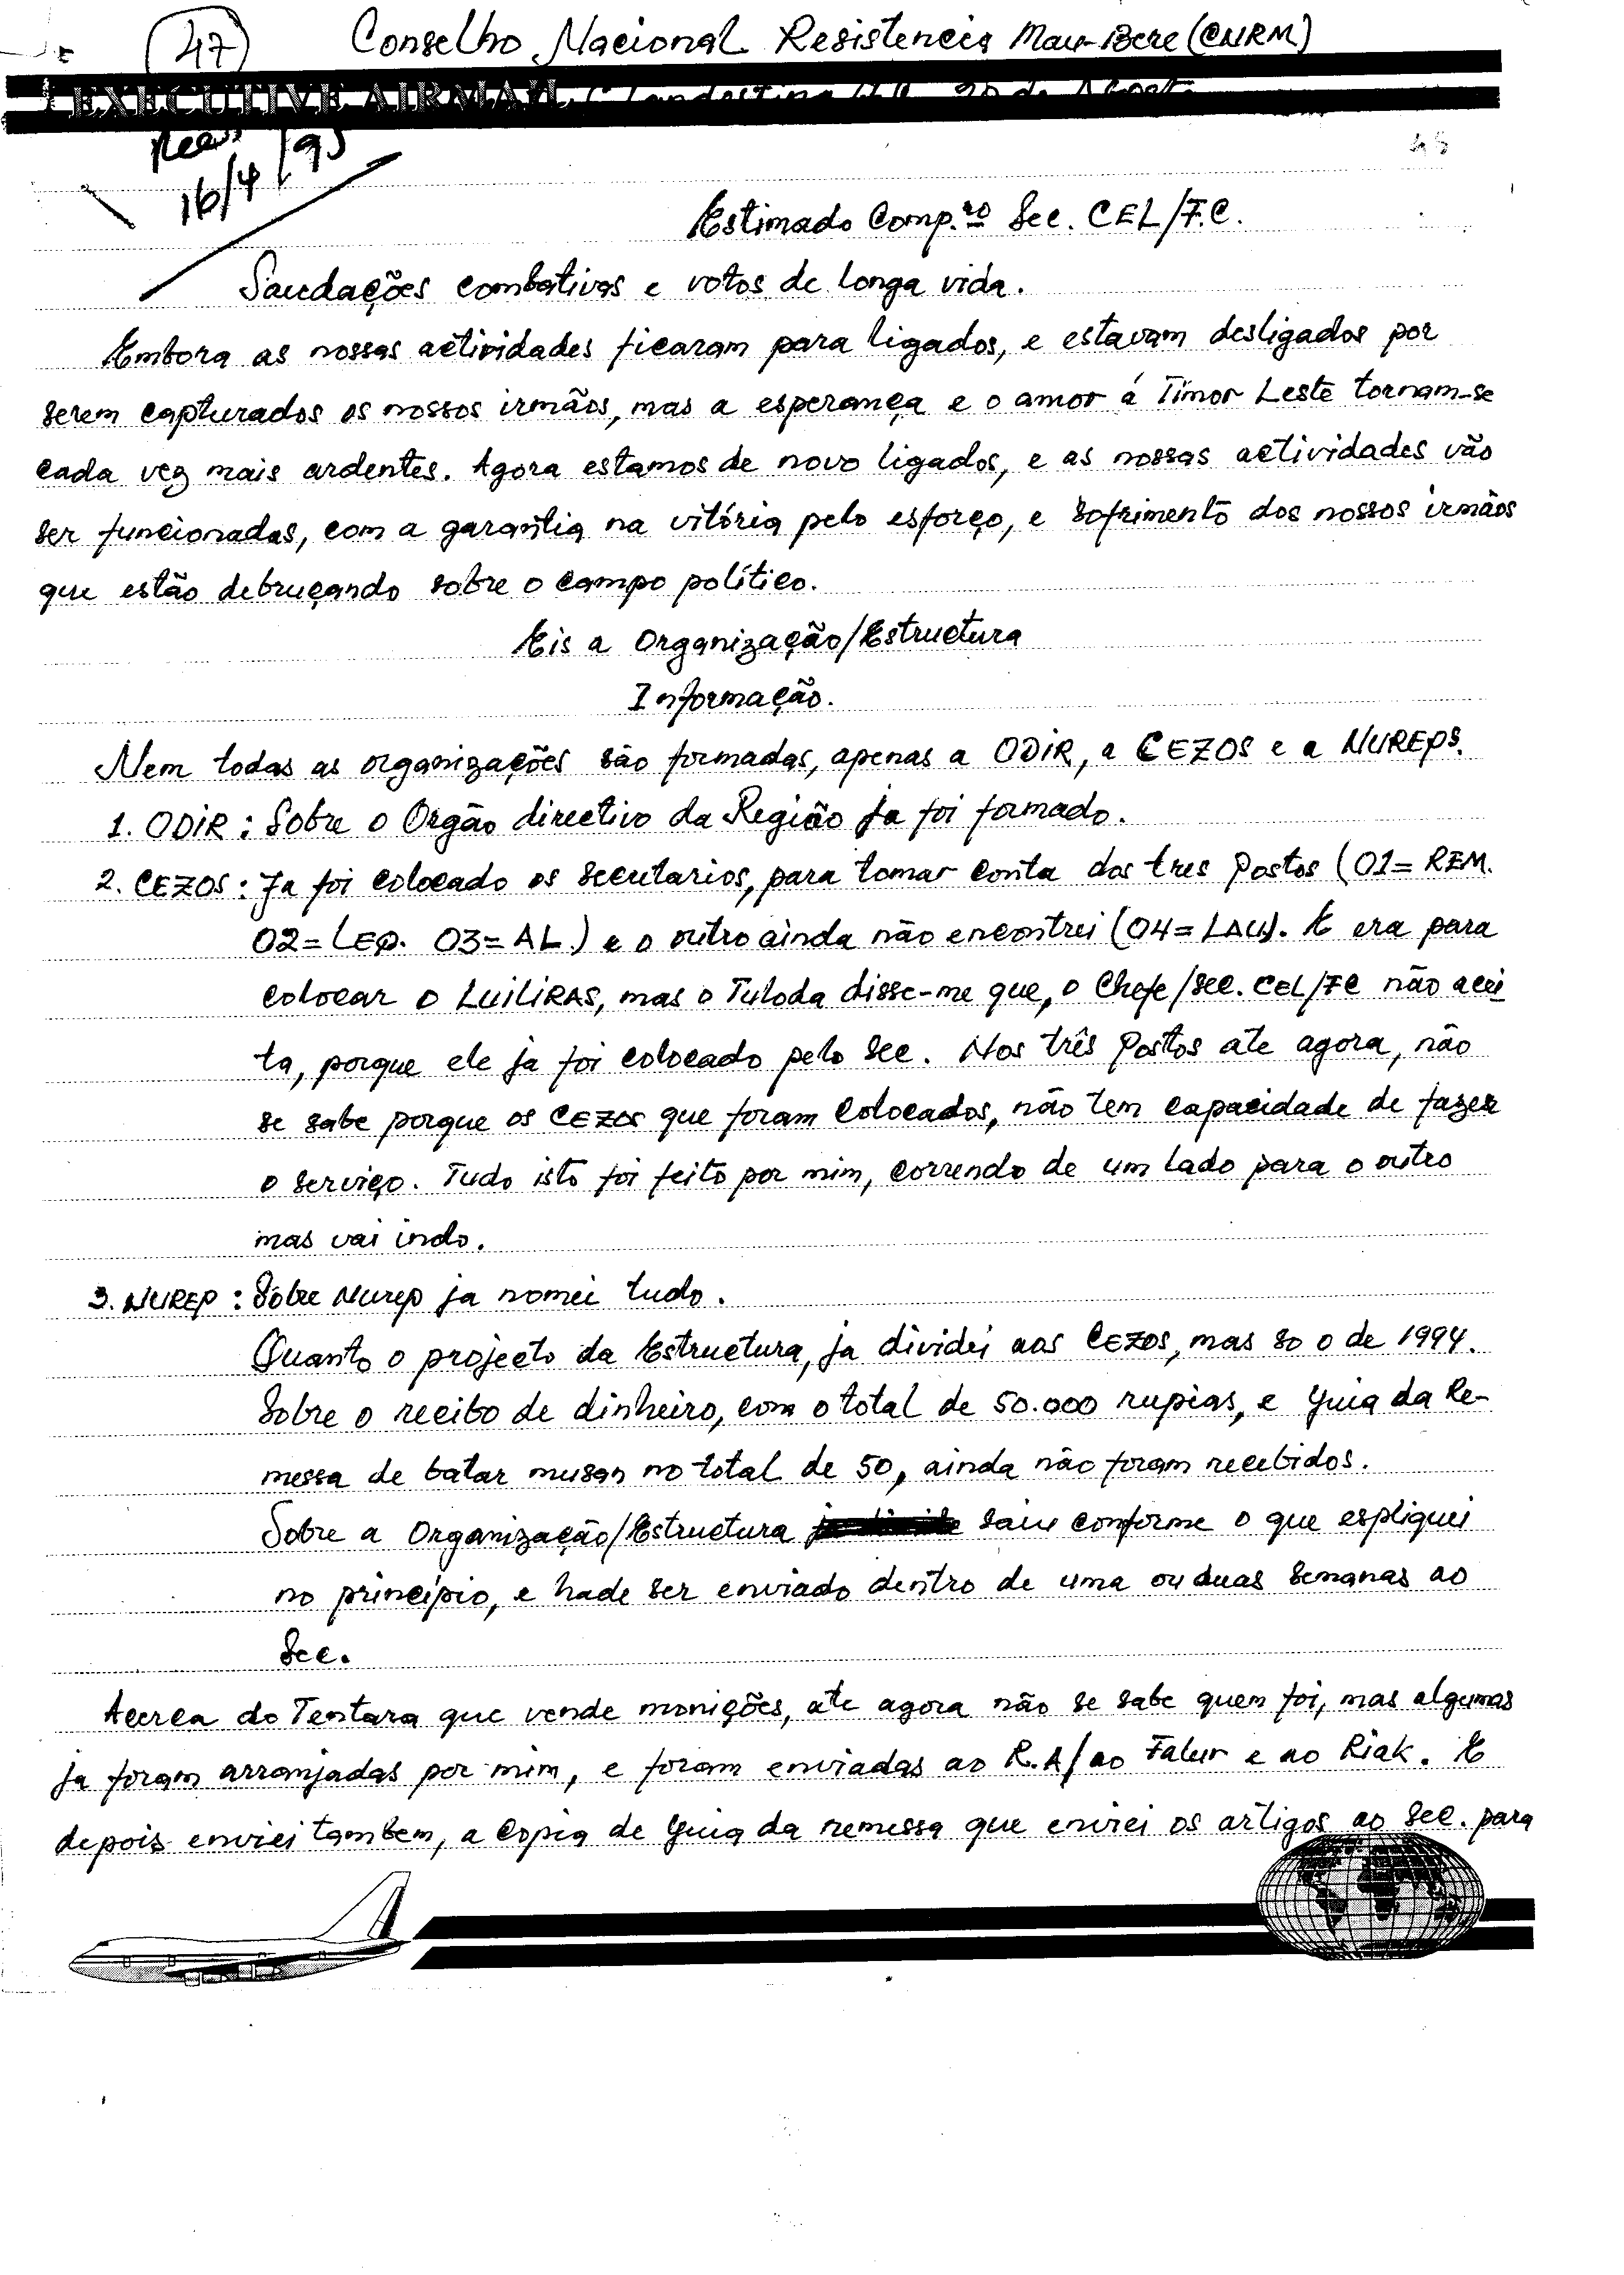 (47) Conselho Nacional Resistencia Mau-Bere (CNRM)
EXECUTIVE AIRMAIL Clandestina
16/4/95
Estimado Comp.ro Sec. CEL/F.C.
Saudações combativas e votos de longa vida.
Embora as nossas actividades ficaram para ligados, e estavam desligados por
serem capturados os nossos irmãos, mas a esperança e o amor á Timor Leste tornam-se
cada vez mais ardentes. Agora estamos de novo ligados, e as nossas actividades vão
ser funcionadas, com a garantia na vitória pelo esforço, e sofrimento dos nossos irmãos
que estão debruçando sobre o campo político.
Eis a Organização/Estructura
Informação.
Nem todas as organizações são formadas, apenas a ODIR, a CEZOS e a NUREPS.
1. ODIR : Sobre o Orgão directivo da Região ja foi formado.
2. CEZOS : Ja foi colocado os secretarios, para tomar conta dos tres Postos (01= REM.
02= LEQ. 03= AL.) e o outro ainda não encontrei (04= LAU). E era para
colocar o LUILIRAS, mas o Tuloda disse-me que, o Chefe/Sec. CEL/FC não acei
ta, porque ele ja foi colocado pelo Sec. Nos três Postos ate agora, não
se sabe porque os CEZOS que foram colocados, não tem capacidade de fazer
o serviço. Tudo isto foi feito por mim, correndo de um lado para o outro
mas vai indo.
3. NUREP : Sobre Nurep ja nomei tudo.
Quanto o projecto da Estructura, ja dividei aos CEZOS, mas so o de 1994.
Sobre o recibo de dinheiro, com o total de 50.000 rupias, e Guia da Re-
messa de batar musan no total de 50, ainda não foram recebidos.
Sobre a Organização/Estructura saiu conforme o que espliquei
no princípio, e hade ser enviado dentro de uma ou duas semanas ao
Sec.
Acerca do Tentara que vende monições, ate agora não se sabe quem foi, mas algumas
ja foram arranjadas por mim, e foram enviadas ao R.A/ao Falur e ao Riak. E
depois enviei tambem, a copia de Guia da remessa que enviei os artigos ao Sec. para